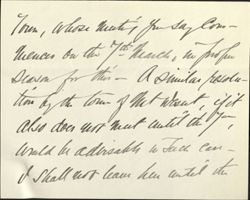 Town, whose meeting, you say Com-
mences on the 7th March, in proper
season for this — A similar resolu-
tion by the town of that West, if it
also does not meet until the 7th,
would be advisable in such case —
I shall not leave here until the